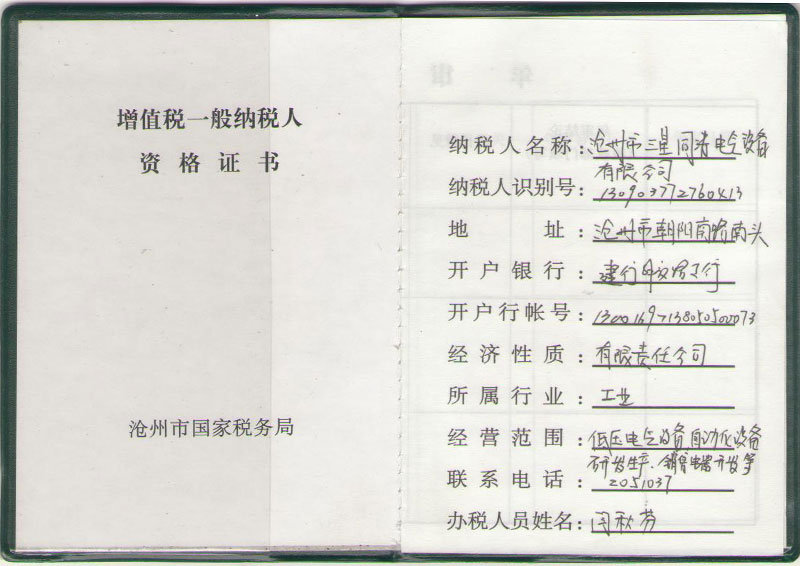 增值税一般纳税人
资格证书
沧州市国家税务局
纳税人名称：沧州市三星同济电气设备
有限公司
纳税人识别号：130903772760413
地址：沧州市朝阳南路南头
开户银行：建行 支行
开户行帐号：
经济性质：有限责任公司
所属行业：工业
经营范围：低压电气设备自动化设备
研发生产、销售 开发等
联系电话：2051037
办税人员姓名：闫秋芬